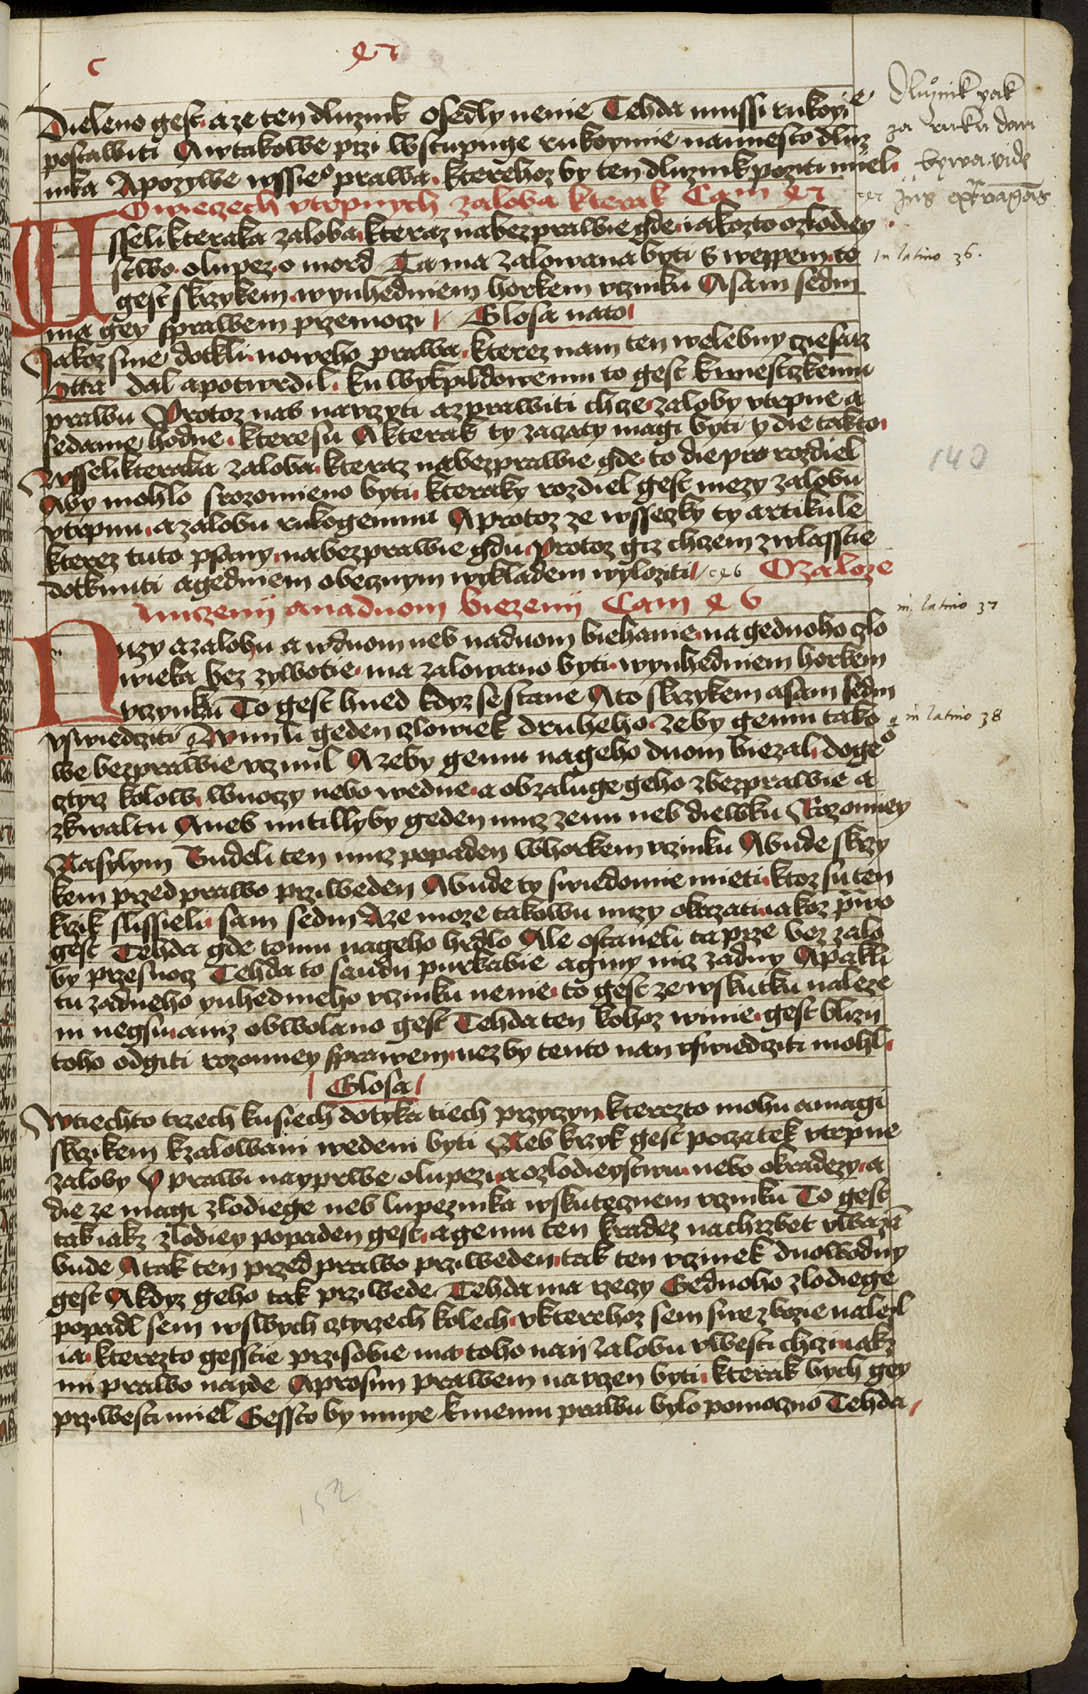 c
Dieleno gest aze ten dluznik osedly nenie Tehda mussi rukoymie
postawiti A w takowe przi wstupuge rukoymie na miesto dluz
nika A pozywe wssieo prawa kterehoz by ten dluznik poziti miel
O wieczech vtrpnych zaloba kterak Cam
Wsselikteraka zaloba kteraz nabezprawie gde iakozto o zlodiey
stwo o lupez o mord Ta ma zalowana byti s weppem to
gest skrzykem w ynhedniem horkem vczinku A sam sedm
ma gey sprawem przemoczi Glosa na to
Jakoz sme dotkli noweho prawa kterez nam ten welebny cziesarz
Otta dal a potwrdil ku wykpildowemu to gest k miestczkemu
prawu Protoz nas nauczyti a zprawiti chcze zaloby vtrpne a
sedanie hodne kteresu A kterak ty zaczaty magi byti y die takto
Wsselikteraka zaloba kteraz nabezprawie gde to die pro rozdiel
Aby mohlo srozomieno byti kteraky rozdiel gest mezy zalobu
vtrpnu a zalobu rukogemnu A protoz ze wsseczky ty artikule
kterez tuto psany nabezprawie gdu Protoz giz chczem zwlasstie
dotknuti a gedniem obecznym wykladem wyloziti O zaloze
nuczenij a na duom biezenij Cam
Nuzy a zalobu a w duom neb na duom biehanie na gednoho czlo
wieka bez zywotie ma zalowano byti w ynhedniem horkem
vczynku To gest hned kdyz se stane A to skrzykem a sam sedm
vswiedcziti Winnili geden czlowiek druheho ze by gemu tako
we bezprawie vczinil A ze by gemu na geho duom biezal do geo
cztyrz kolow w noczy nebo we dne a obzaluge geho z bezprawie a
z kwaltu A neb nutillyby geden muz zenu neb diewku Rozomiey
Nasylym Budeli ten muz popaden w horkem vczinku A bude skrzy
kem przed prawo prziweden A bude ty swiedomie mieti ktoz su ten
krzik slissieli sam sedm A ze moze takowu nuzy okazati iakoz prawo
gest Tehda gde tomu na geho hrdlo Ale ostaneli ta prze bez zalo
by przesnocz Tehda to saudi purkabie a giny nicz zadny A pakli
tu zadneho ynhedmeho vczinku nenie to gest ze w skutku naleze
ni negsu aniz obwolano gest Tehda ten kohoz winie gest blizij
toho odgiti rozomiey sprawem nez by tento nan vswiedcziti mohl
Glosa
W tiechto trzech kusiech dotyka tiech przyczyn kterezto mohu a magi
skrzikem k zalowani wedeni byti Neb krzyk gest poczatek vtrpne
zaloby Y prawi nayprwe o lupezi a o zlodieystwu nebo o kradezy a
die ze magi zlodiege neb lupeznika w skutecznem vczinku To gest
tak iakz zlodiey popaden gest a gemu ten kradez na chrzbet vwazen
bude A tak ten przed prawo prziweden tak ten vczinek duowodny
gest A kdyz geho tak prziwede Tehda ma rzeczy Gednoho zlodiege
popadl sem w swych cztyrzech kolech v kterehoz sem swe zbozie nalezl
ia kterezto gesstie przi sobie ma toho nan zalobu vwesti chczi iakz
mi prawo nayde A prosim prawem nauczen byti kterak bych gey
prziwesti miel Gessto by mnye k memu prawu bylo pomoczno Tehda
Dlužnik yak
za ruku dan
bywa. vide
Jus extravagans
In latino 36.
in latino 37
in latino 38
140
152